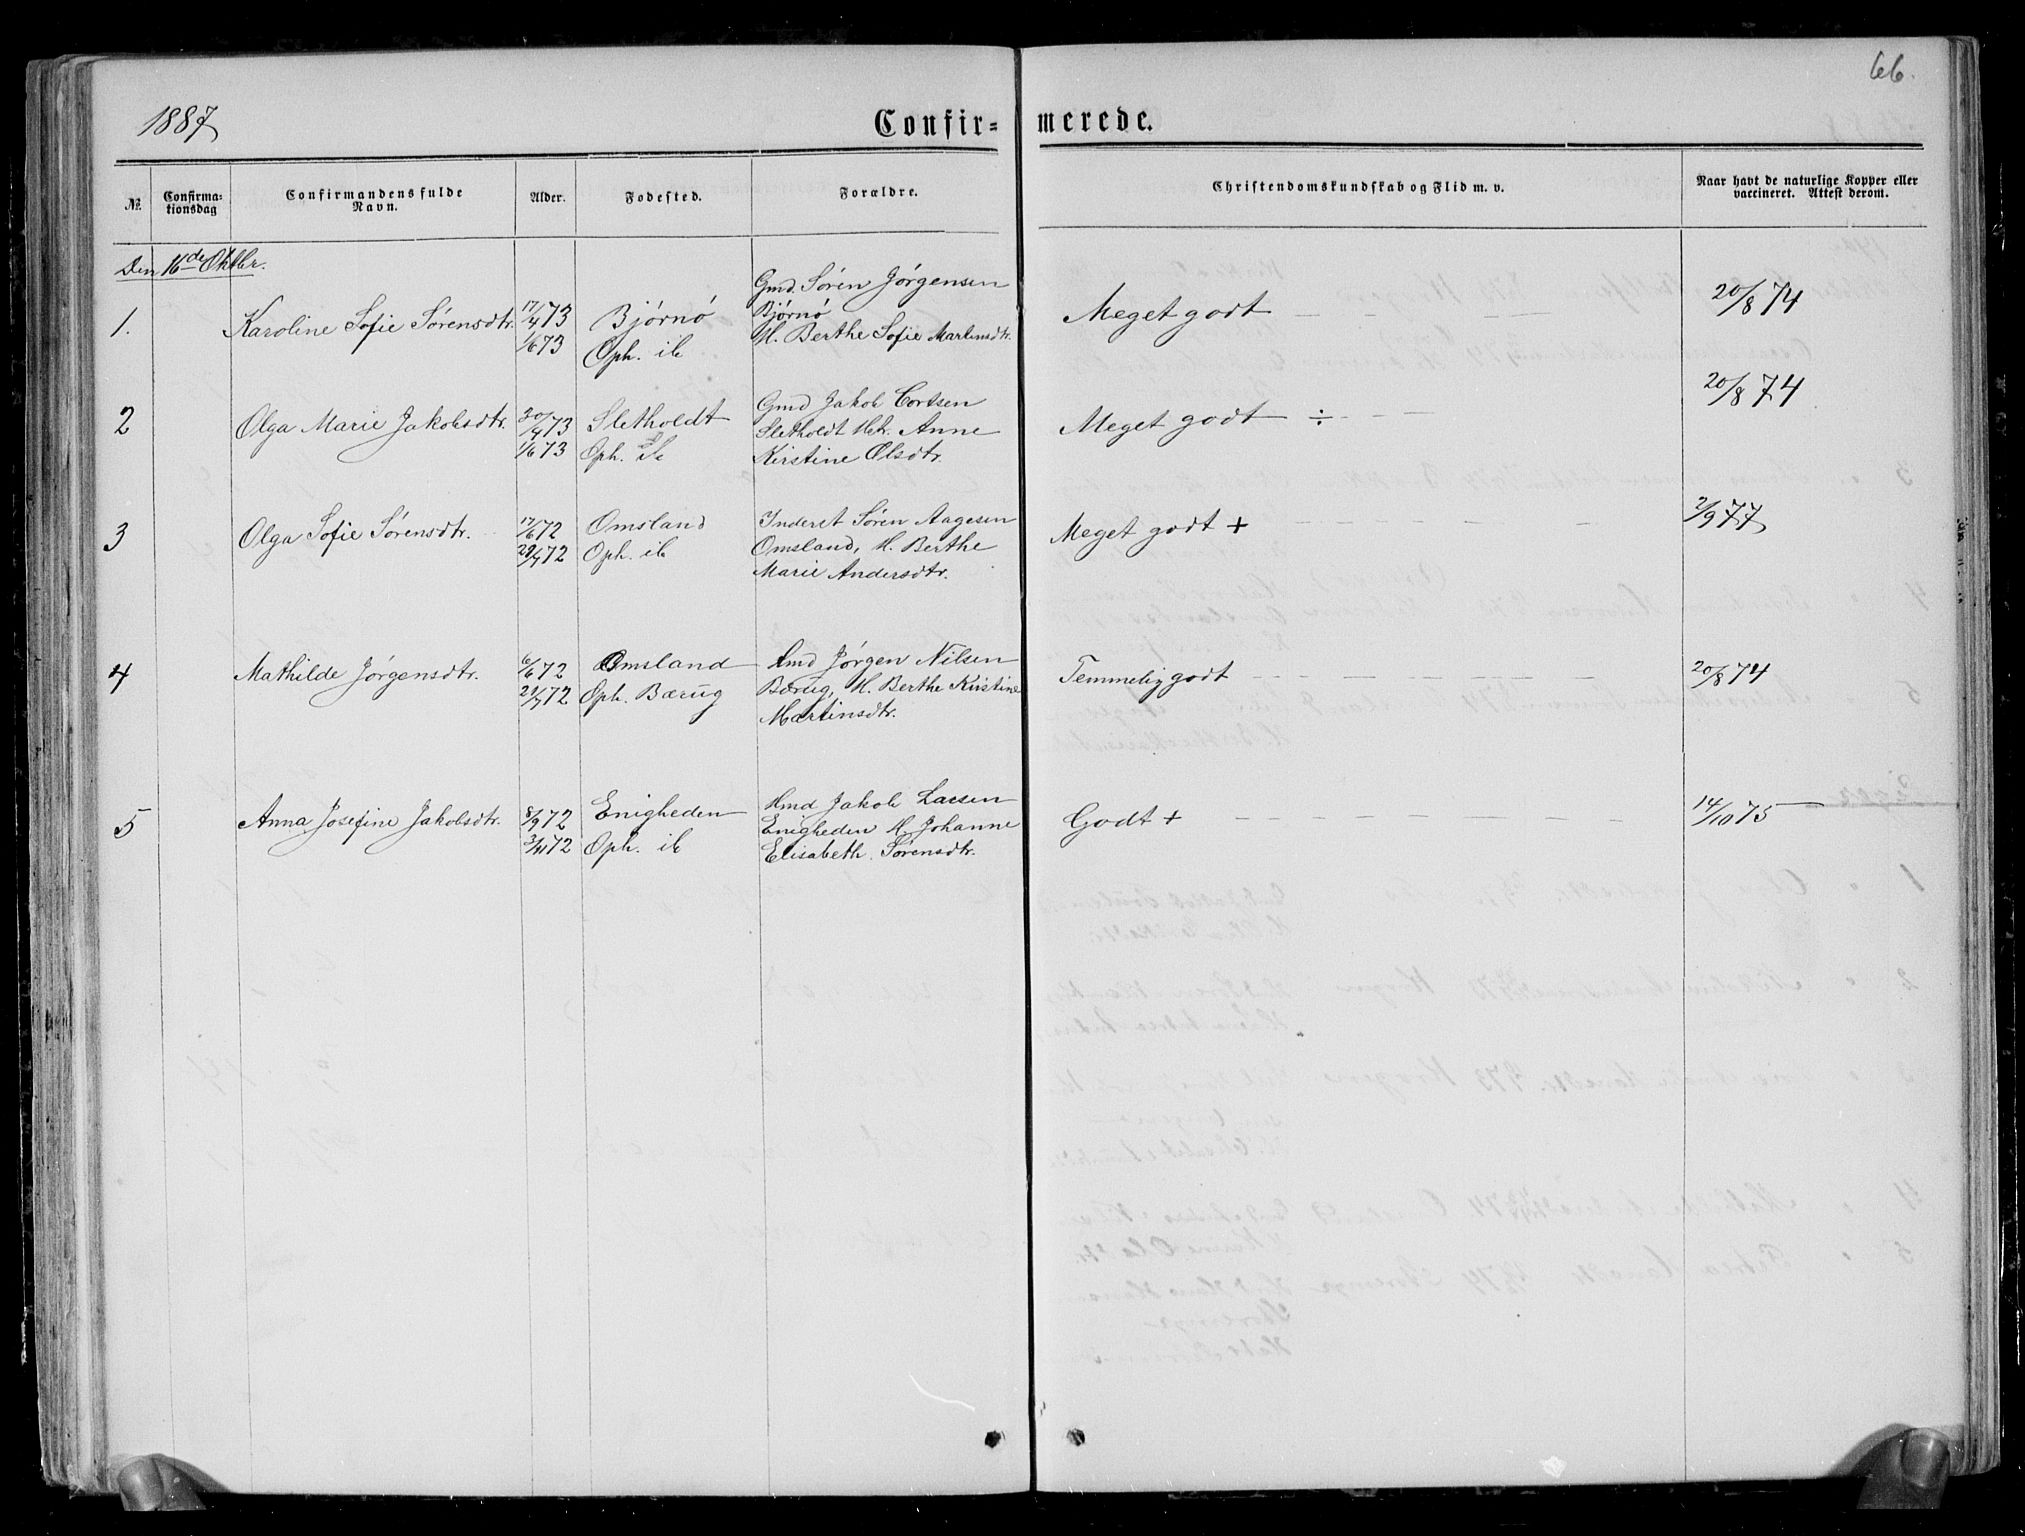 66.
1887
Confir- merede.
№. Confirma-tionsdag Confirmandens fulde Navn. Alder. Fodested. Forældre. Christendomskundskab og Flid m. v. Naar havt de naturlige Kopper eller vaccineret. Attest derom.
Den 16de Oktbr.
1. Karoline Sofie Sørensdtr. 17/4 73 Bjørnø Gmd. Søren Jørgensen Meget godt 20/8 74
1/6 73 Oph. ib Bjørnø
H. Berthe Sofie Martinsdtr.
2 Olga Marie Jakobsdtr. 20/4 73 Sletholdt Gmd Jakob Cortsen Meget godt ÷ 20/8 74
1/6 73 Oph. ib Sletholdt Hstr. Anne
Kirstine Olsdtr.
3 Olga Sofie Sørensdtr. 17/6 72 Omsland Inderst Søren Aagesen Meget godt + 2/9 77
29/7 72 Oph. ib Omsland, H. Berthe
Marie Andersdtr.
4 Mathilde Jørgensdtr. 6/6 72 Omsland Jørgen Nilsen Temmelig godt 20/8 74
21/7 72 Oph. Bærug Bærug, H. Berthe Kirstine
Martinsdtr.
5 Anna Josefine Jakobsdtr. 8/9 72 Enigheden Hmd Jakob Larsen Godt + 14/10 75
3/11 72 Oph. ib Enigheden H. Johanne
Elisabeth Sørensdtr.